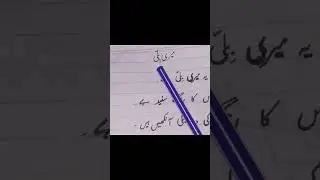 میری بلّی
یہ میری بلّی
کا سفید ہے۔
کی آنکھیں ہیں۔